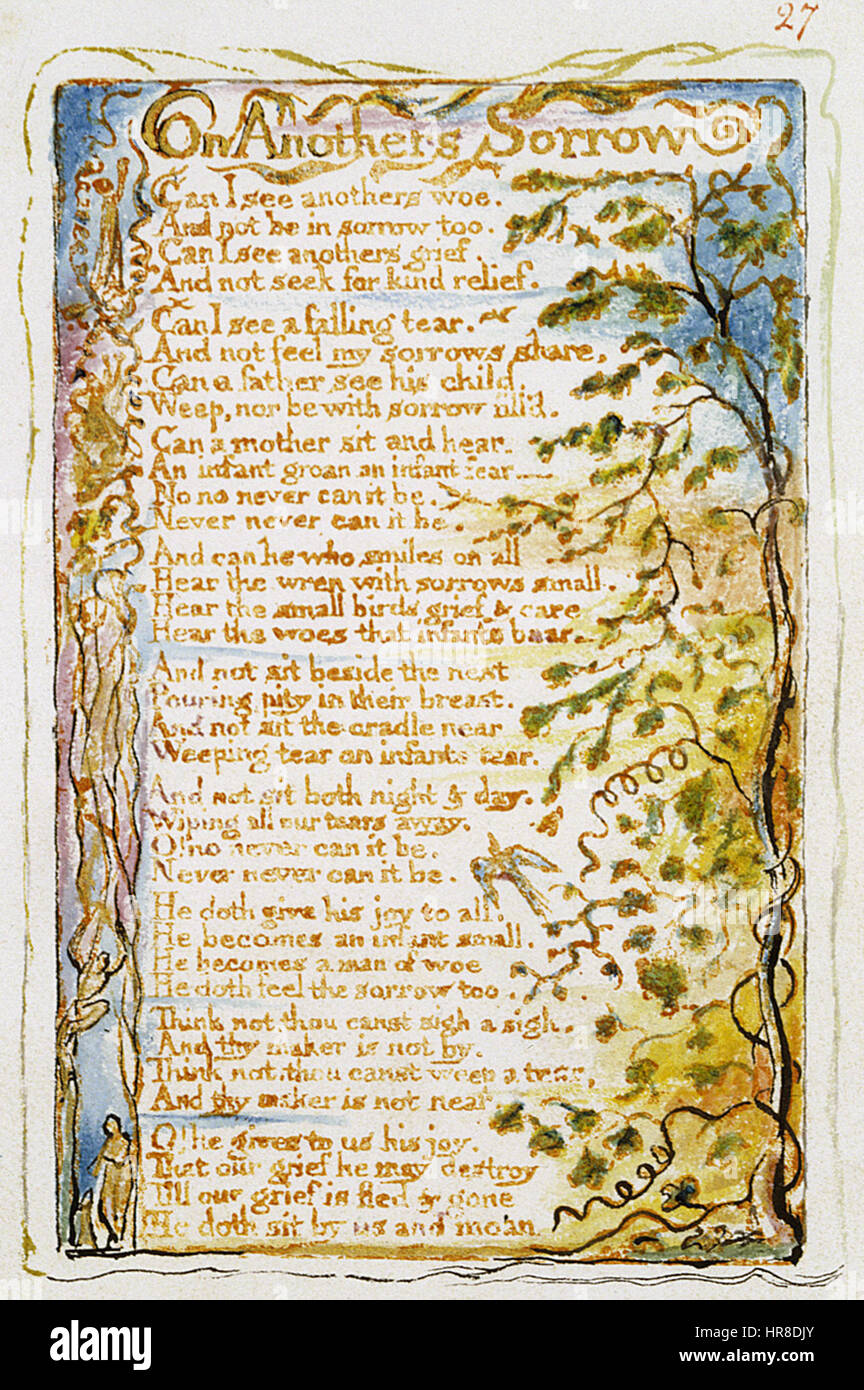 27
On Anothers Sorrow
Can I see anothers woe.
And not be in sorrow too.
Can I see anothers grief.
And not seek for kind relief.
Can I see a falling tear.
And not feel my sorrows share,
Can a father see his child.
Weep, nor be with sorrow fill'd.
Can a mother sit and hear.
An infant groan an infant fear
No no never can it be.
Never never can it be.
And can he who smiles on all
Hear the wren with sorrows small.
Hear the small birds grief & care
Hear the woes that infants bear
And not sit beside the nest
Pouring pity in their breast.
And not sit the cradle near
Weeping tear on infants tear.
And not sit both night & day.
Wiping all our tears away.
O! no never can it be.
Never never can it be.
He doth give his joy to all.
He becomes an infant small.
He becomes a man of woe
He doth feel the sorrow too.
Think not thou canst sigh a sigh.
And thy maker is not by.
Think not thou canst weep a tear,
And thy maker is not near
O! he gives to us his joy.
That our grief he may destroy
Till our grief is fled & gone
He doth sit by us and moan
a
alamy
alamy
Image ID: HR8DJY
www.alamy.com